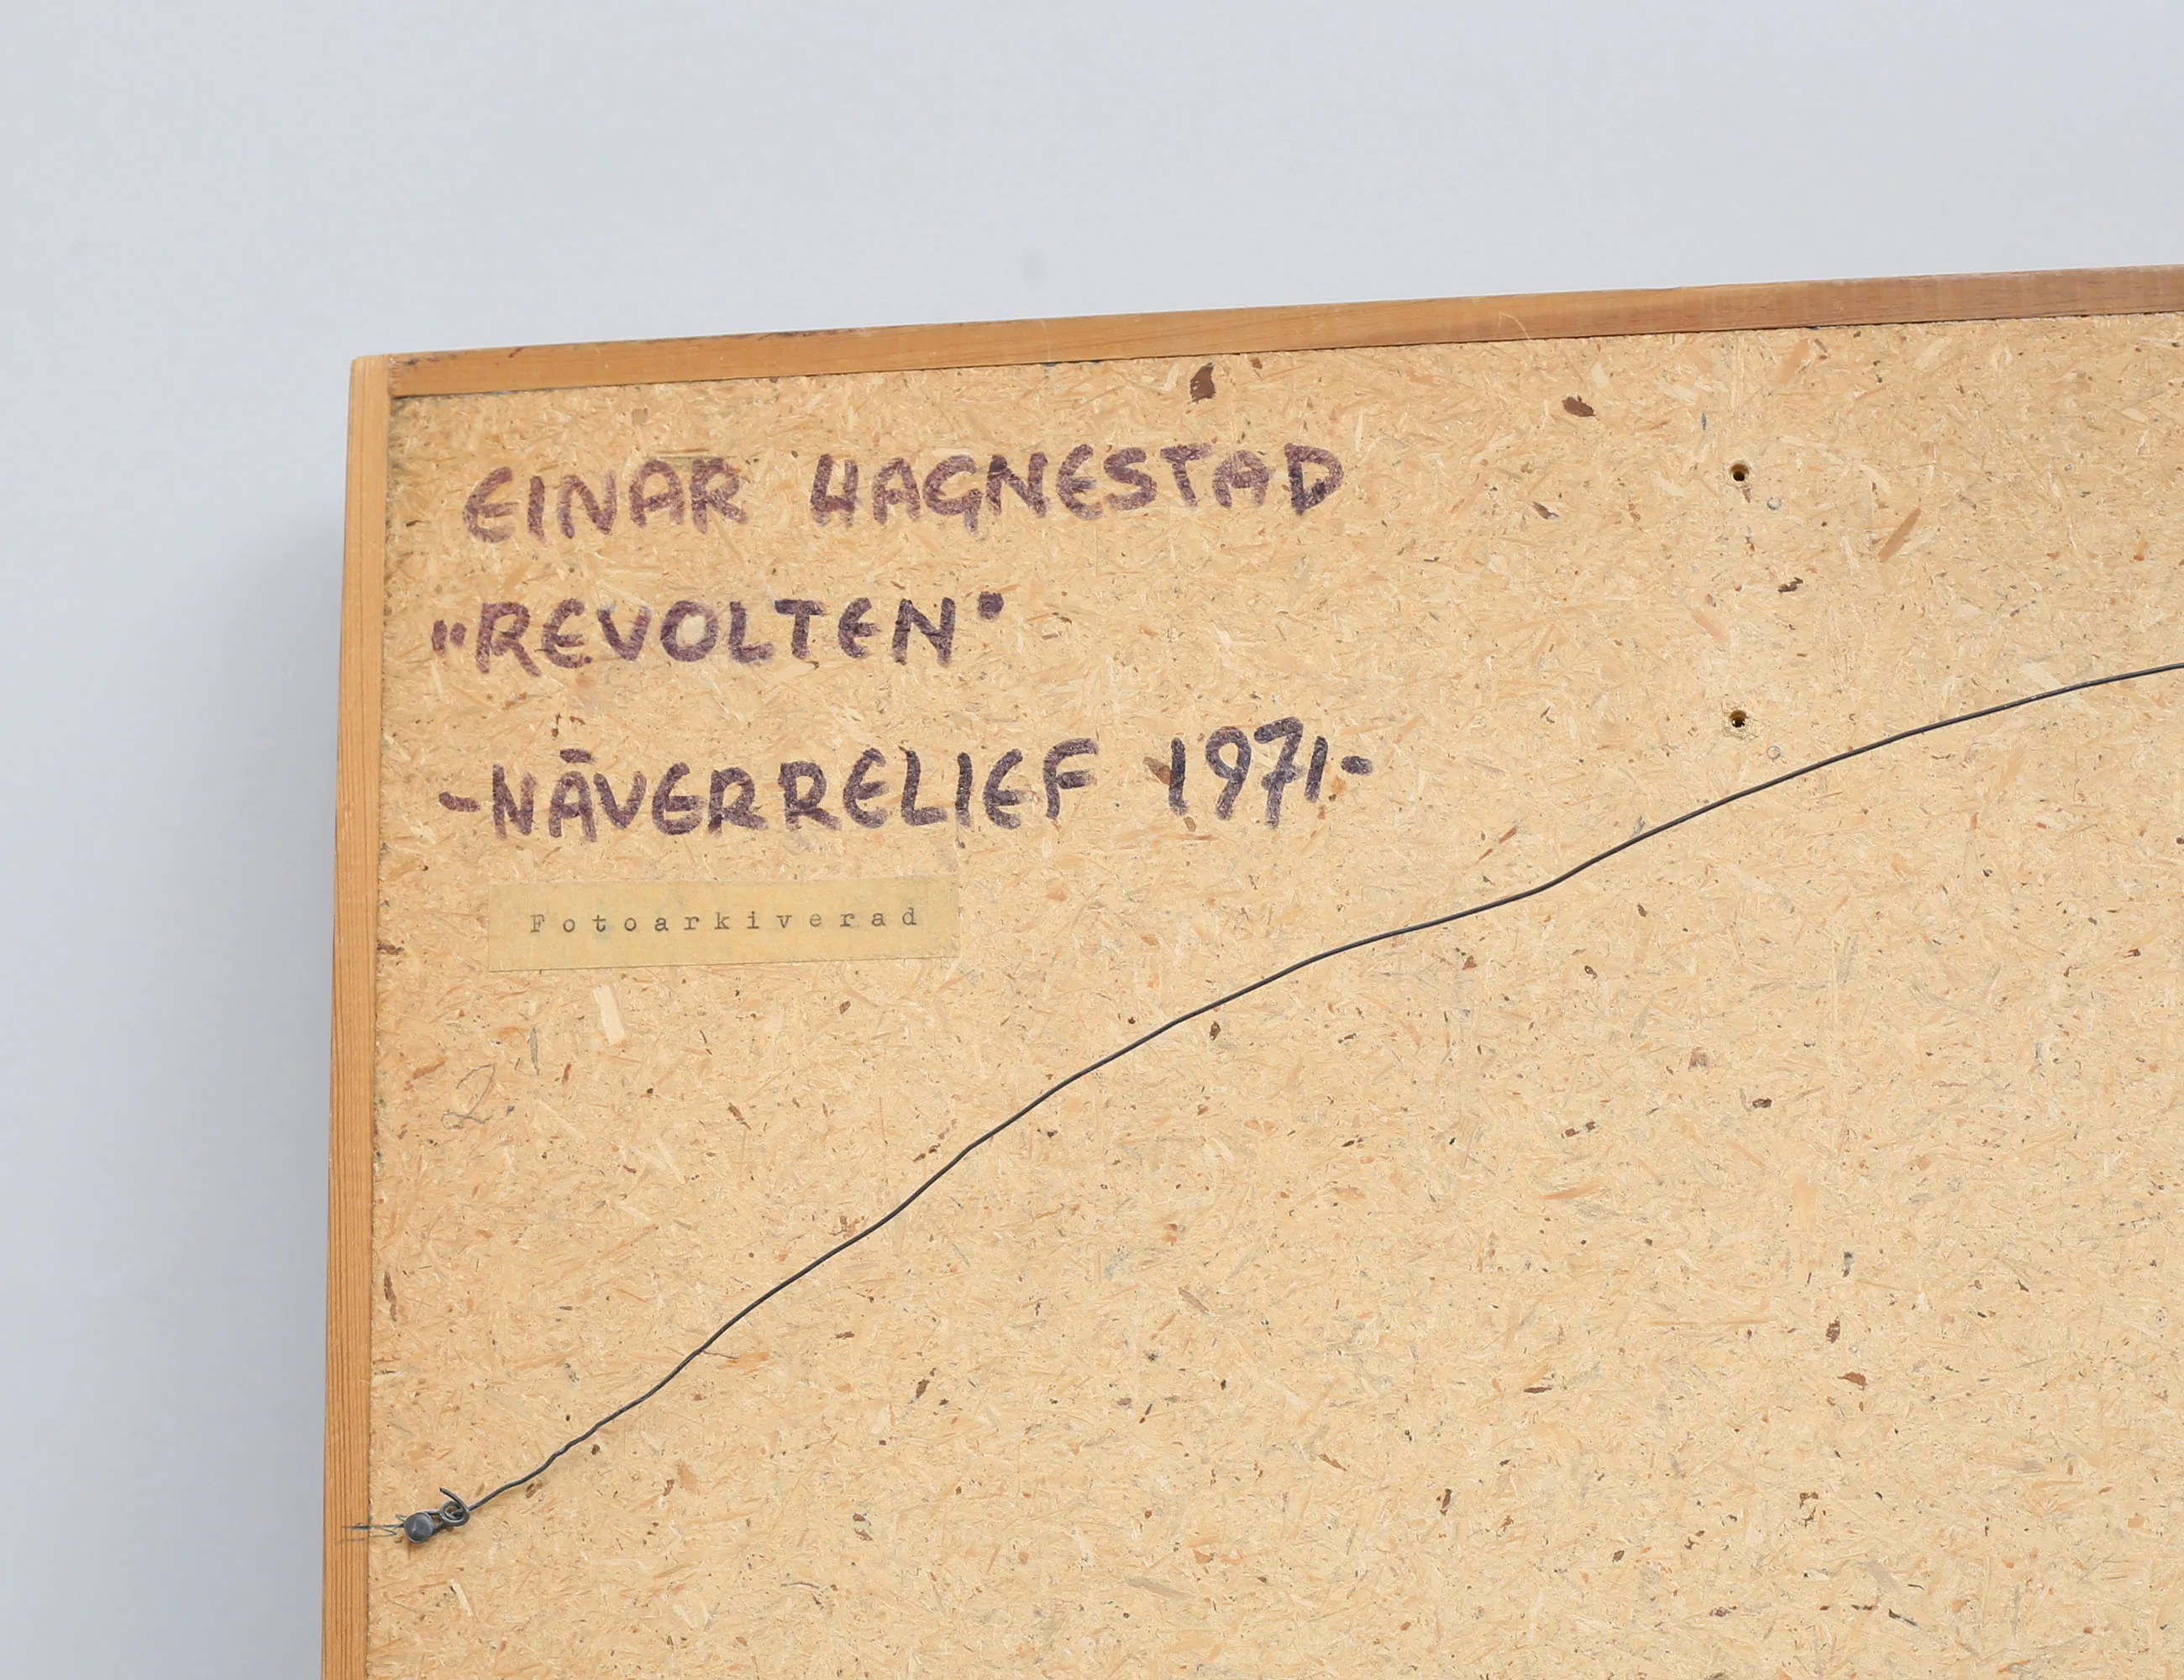 EINAR HAGNESTAD
"REVOLTEN"
-NÄVERRELIEF 1971-
Fotoarkiverad
2